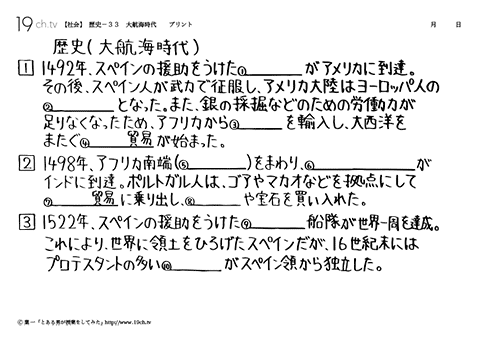 19 ch.tv 【社会】 歴史－33 大航海時代 プリント 月 日
歴史(大航海時代)
1 1492年、スペインの援助をうけた①________がアメリカに到達。
その後、スペイン人が武力で征服し、アメリカ大陸はヨーロッパ人の
②________となった。また、銀の採掘などのための労働力が
足りなくなったため、アフリカから③________を輸入し、大西洋を
またぐ④________貿易が始まった。
2 1498年、アフリカ南端(⑤________)をまわり、⑥________が
インドに到達。ポルトガル人は、ゴアやマカオなどを拠点にして
⑦________貿易に乗り出し、⑧________や宝石を買い入れた。
3 1522年、スペインの援助をうけた⑨________船隊が世界一周を達成。
これにより、世界に領土をひろげたスペインだが、16世紀末には
プロテスタントの多い⑩________がスペイン領から独立した。
© 葉一「とある男が授業をしてみた」http://www.19ch.tv